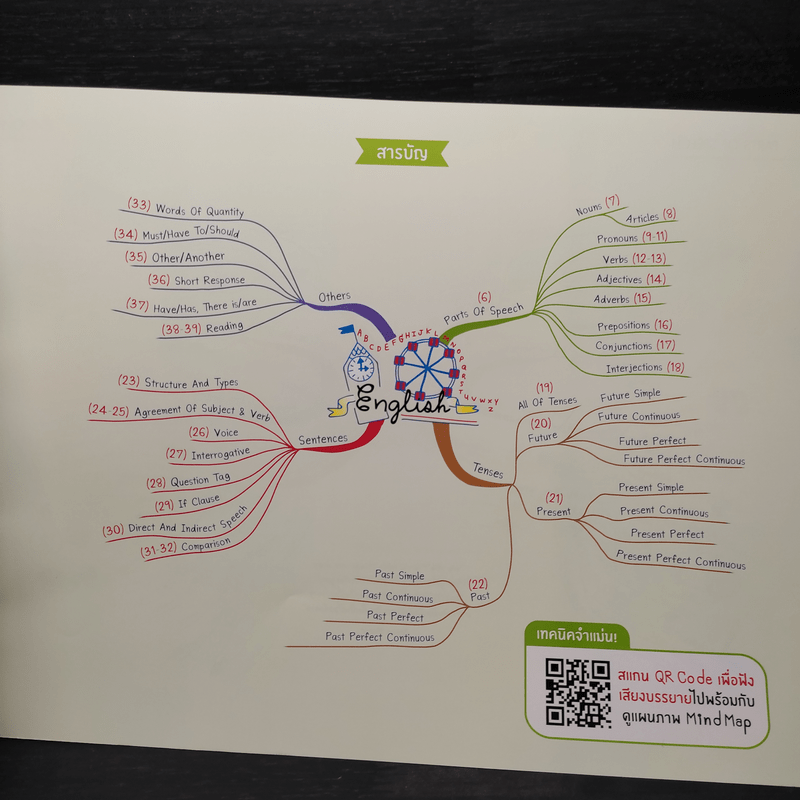 สารบัญ
(33) Words Of Quantity
(34) Must/Have To/Should
(35) Other/Another
(36) Short Response
(37) Have/Has, There is/are
(38-39) Reading
Others
(6)
Parts Of Speech
Nouns (7)
Articles (8)
Pronouns (9-11)
Verbs (12-13)
Adjectives (14)
Adverbs (15)
Prepositions (16)
Conjunctions (17)
Interjections (18)
A B C D E F G H I J K L M N O P Q R S T U V W X Y Z
English
(23) Structure And Types
(24-25) Agreement Of Subject & Verb
(26) Voice
(27) Interrogative
(28) Question Tag
(29) If Clause
(30) Direct And Indirect Speech
(31-32) Comparison
Sentences
Tenses
(19)
All Of Tenses
(20)
Future
Future Simple
Future Continuous
Future Perfect
Future Perfect Continuous
(21)
Present
Present Simple
Present Continuous
Present Perfect
Present Perfect Continuous
(22)
Past
Past Simple
Past Continuous
Past Perfect
Past Perfect Continuous
เทคนิคจำแม่น!
สแกน QR Code เพื่อฟัง
เสียงบรรยายไปพร้อมกับ
ดูแผนภาพ Mind Map